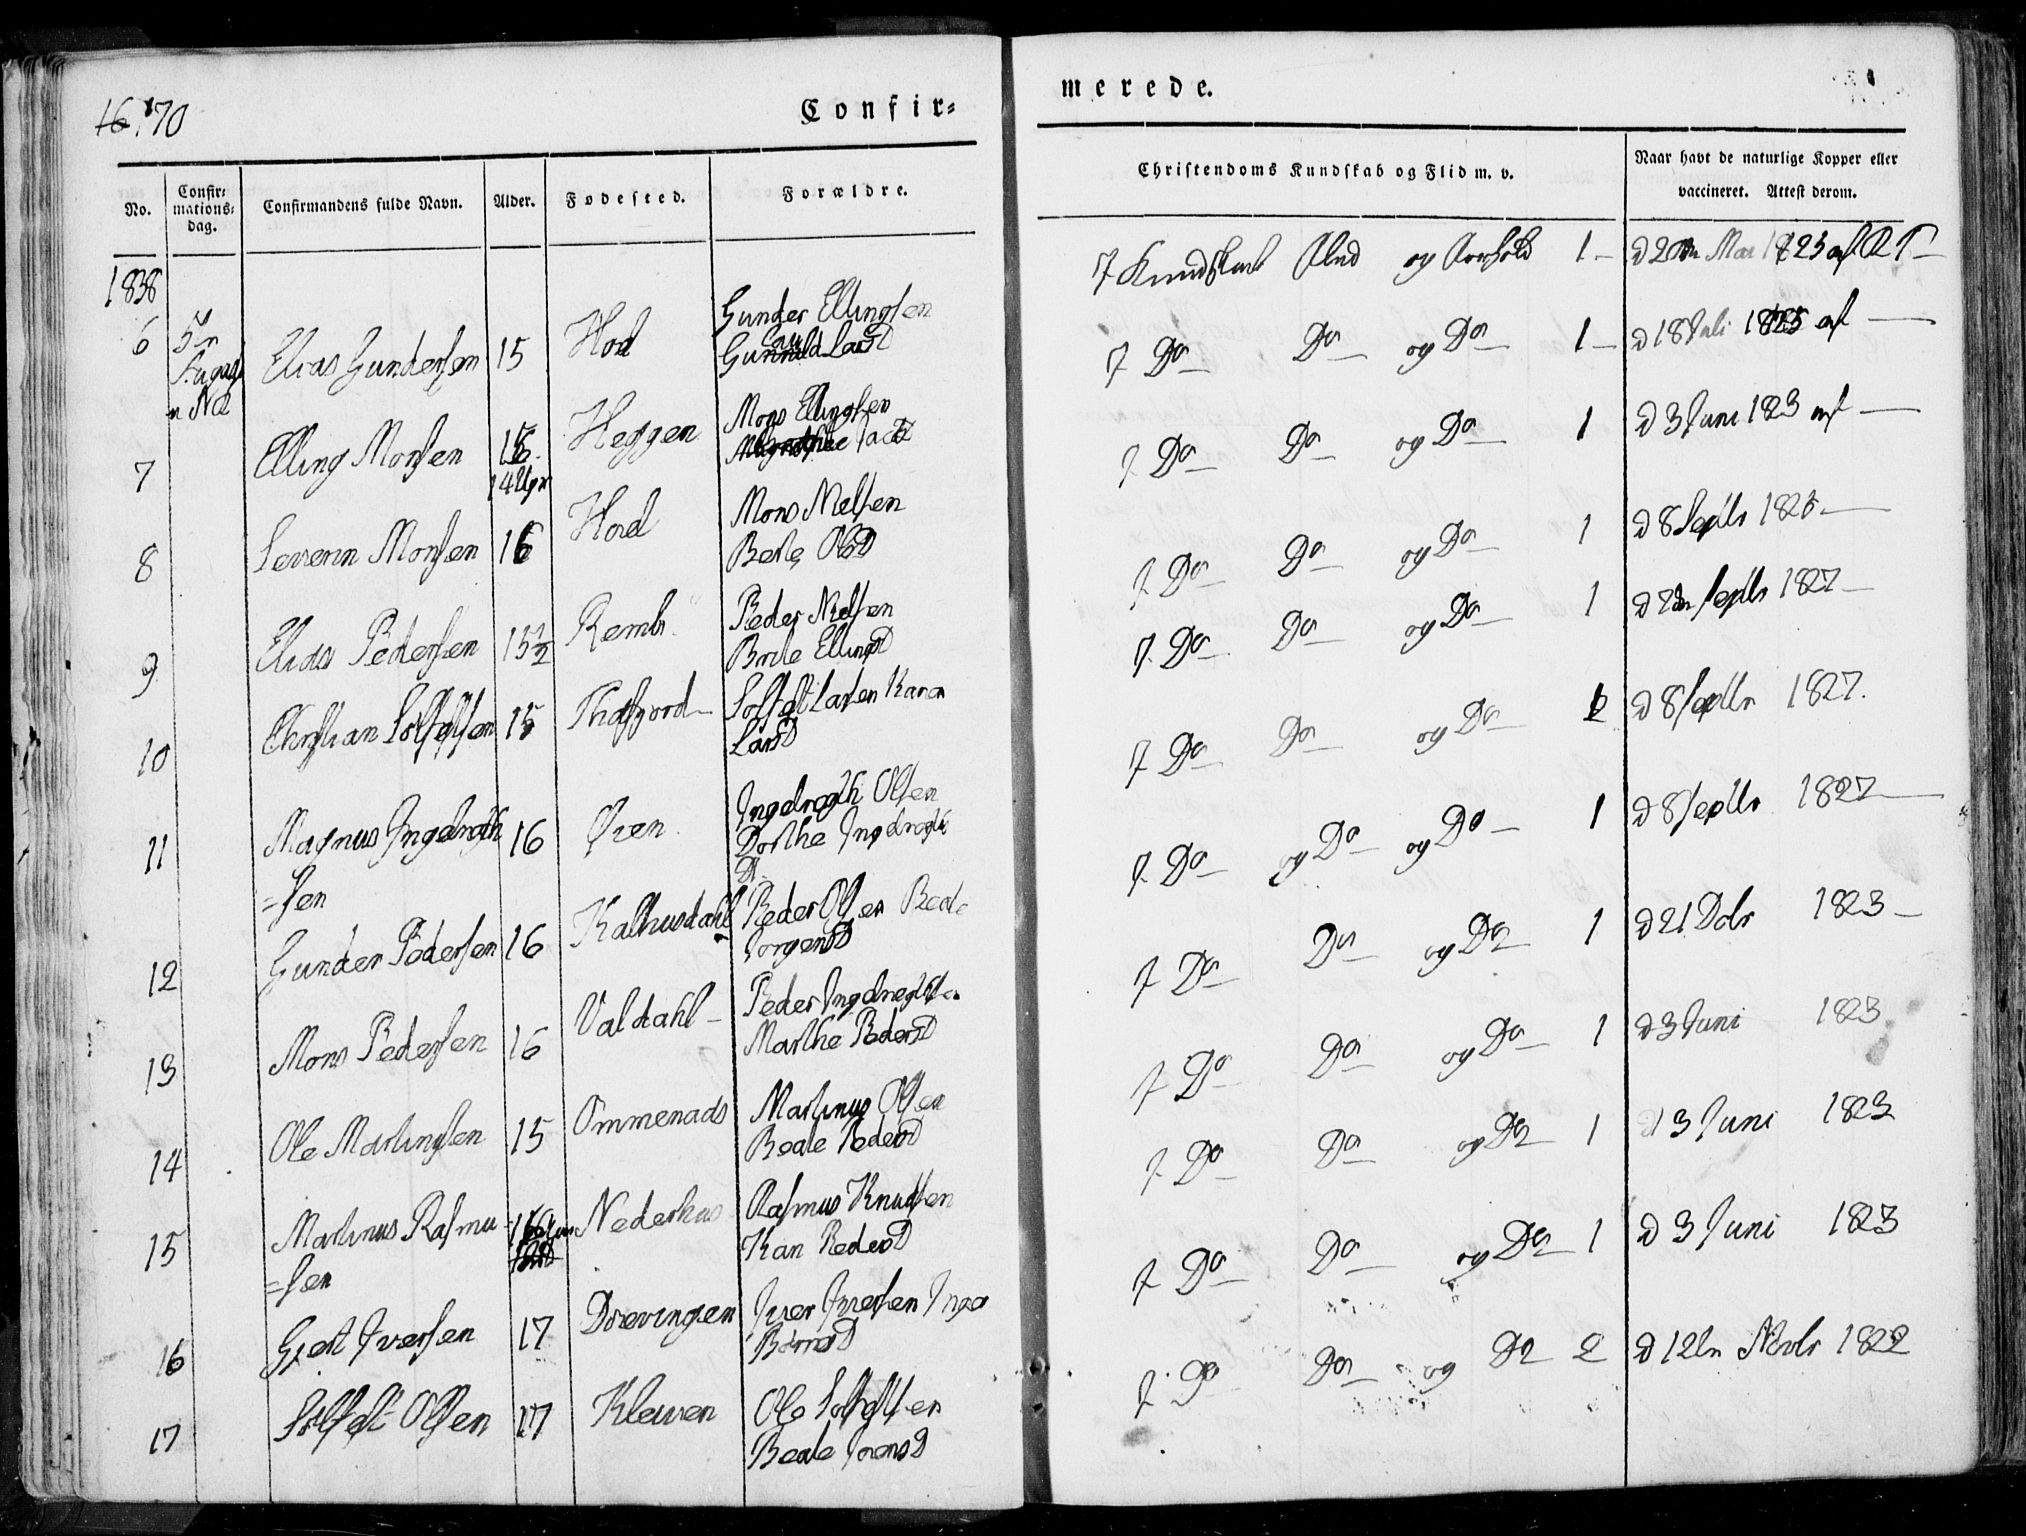 16. 170
Confir=
No.
Confir=
mations=
dag.
Confirmandens fulde Navn.
Alder.
Fødested.
Forældre.
1838
6 5te Elias Gundersen 15 Hod Gunder Ellingsen
Gunnild LarsD
7 Elling Monsen 15 Heggen Mons Ellingsen
8 Severin Monsen 16 Hoel Mons Nelsen
Berte OlsD
9 Elias Pedersen 15½ Remb Peder Nelsen
Brite EllingsD
10 Christian Solfestsen 15 Thafjord Solfest Larsen Karen
LarsD
11 Magnus Ingebregth 16 Øien Ingebregth Olsen
=sen Dorthe Ingebregth
D.
12 Gunder Pedersen 16 Kalhusdahl Peder Olsen Beate
JorgensD
13 Mons Pedersen 16 Valdahl Peder Ingebregtsen
Marthe PedersD
14 Ole Martinsen 15 Ommenaas Martinus Olsen
Beate PedersD
15 Martinus Rasmu 16 Nederhus Rasmus Knudsen
=sen Kari PedersD
16 Gjert Iversen 17 Drevingen Iver Iversen Inga
17 Solfest Olsen 17 Kleiven Ole Solfestsen
Beate JoensD
merede.
Christendoms Kundskab og Flid m. v.
Naar havt de naturlige Kopper eller
vaccineret. Attest derom.
7 Kundskab Flid og Forhold 1 d 1823 af
7 Do Do og Do 1 d 18 Juli 1825 af
7 Do Do og Do 1 d 3 Juni 1823 af
7 Do Do og Do 1 d 8 Septbr 1823
7 Do Do og Do 1 d Septbr 1827
7 Do Do og Do 2 d 8 Septbr 1827.
7 Do og Do og Do 1 d 8 Septbr 1827
7 Do Do og Do 1 d 21 Dcbr 1823
7 Do Do og Do 1 d 3 Juni 1823
7 Do Do og Do 1 d 3 Juni 1823
7 Do Do og Do 1 d 3 Juni 1823
7 Do Do og Do 2 d 12te Novbr 1822